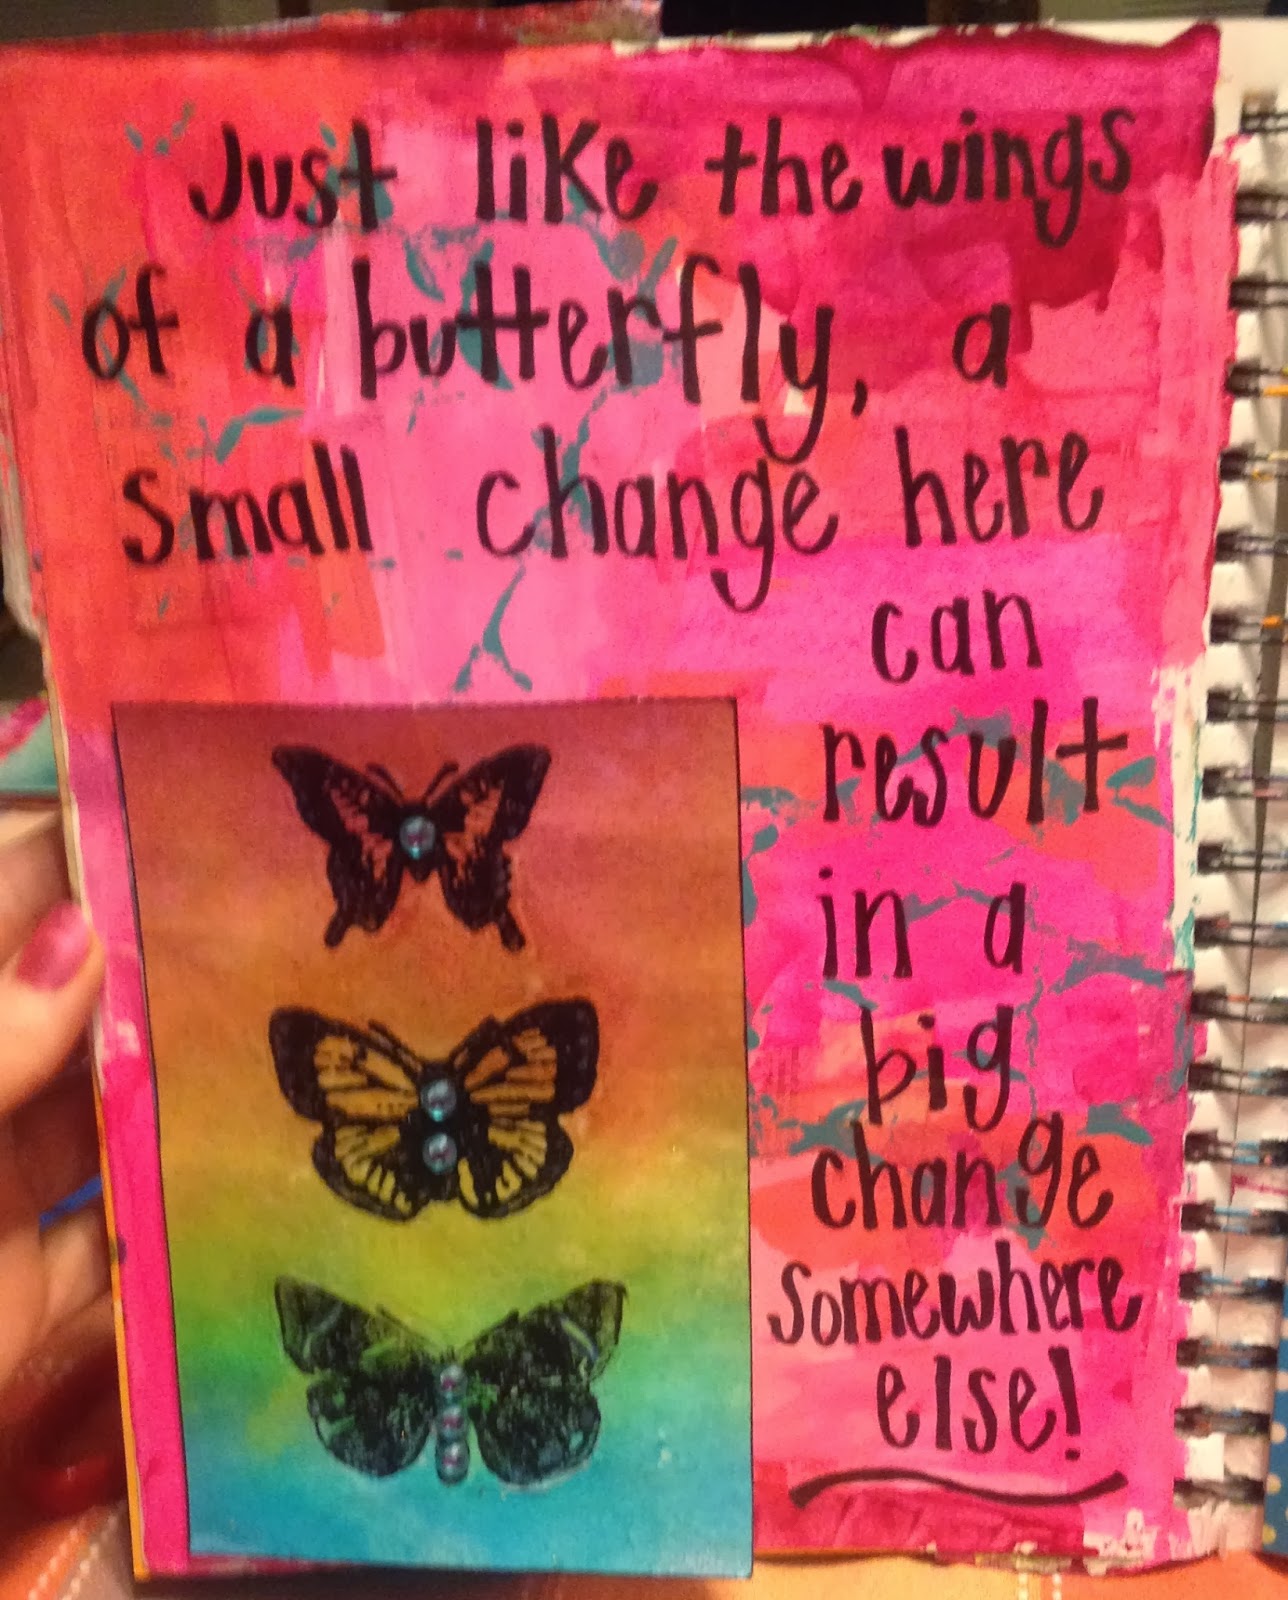 Just like the wings
of a butterfly, a
small change here
can
result
in a
big
change
somewhere
else!